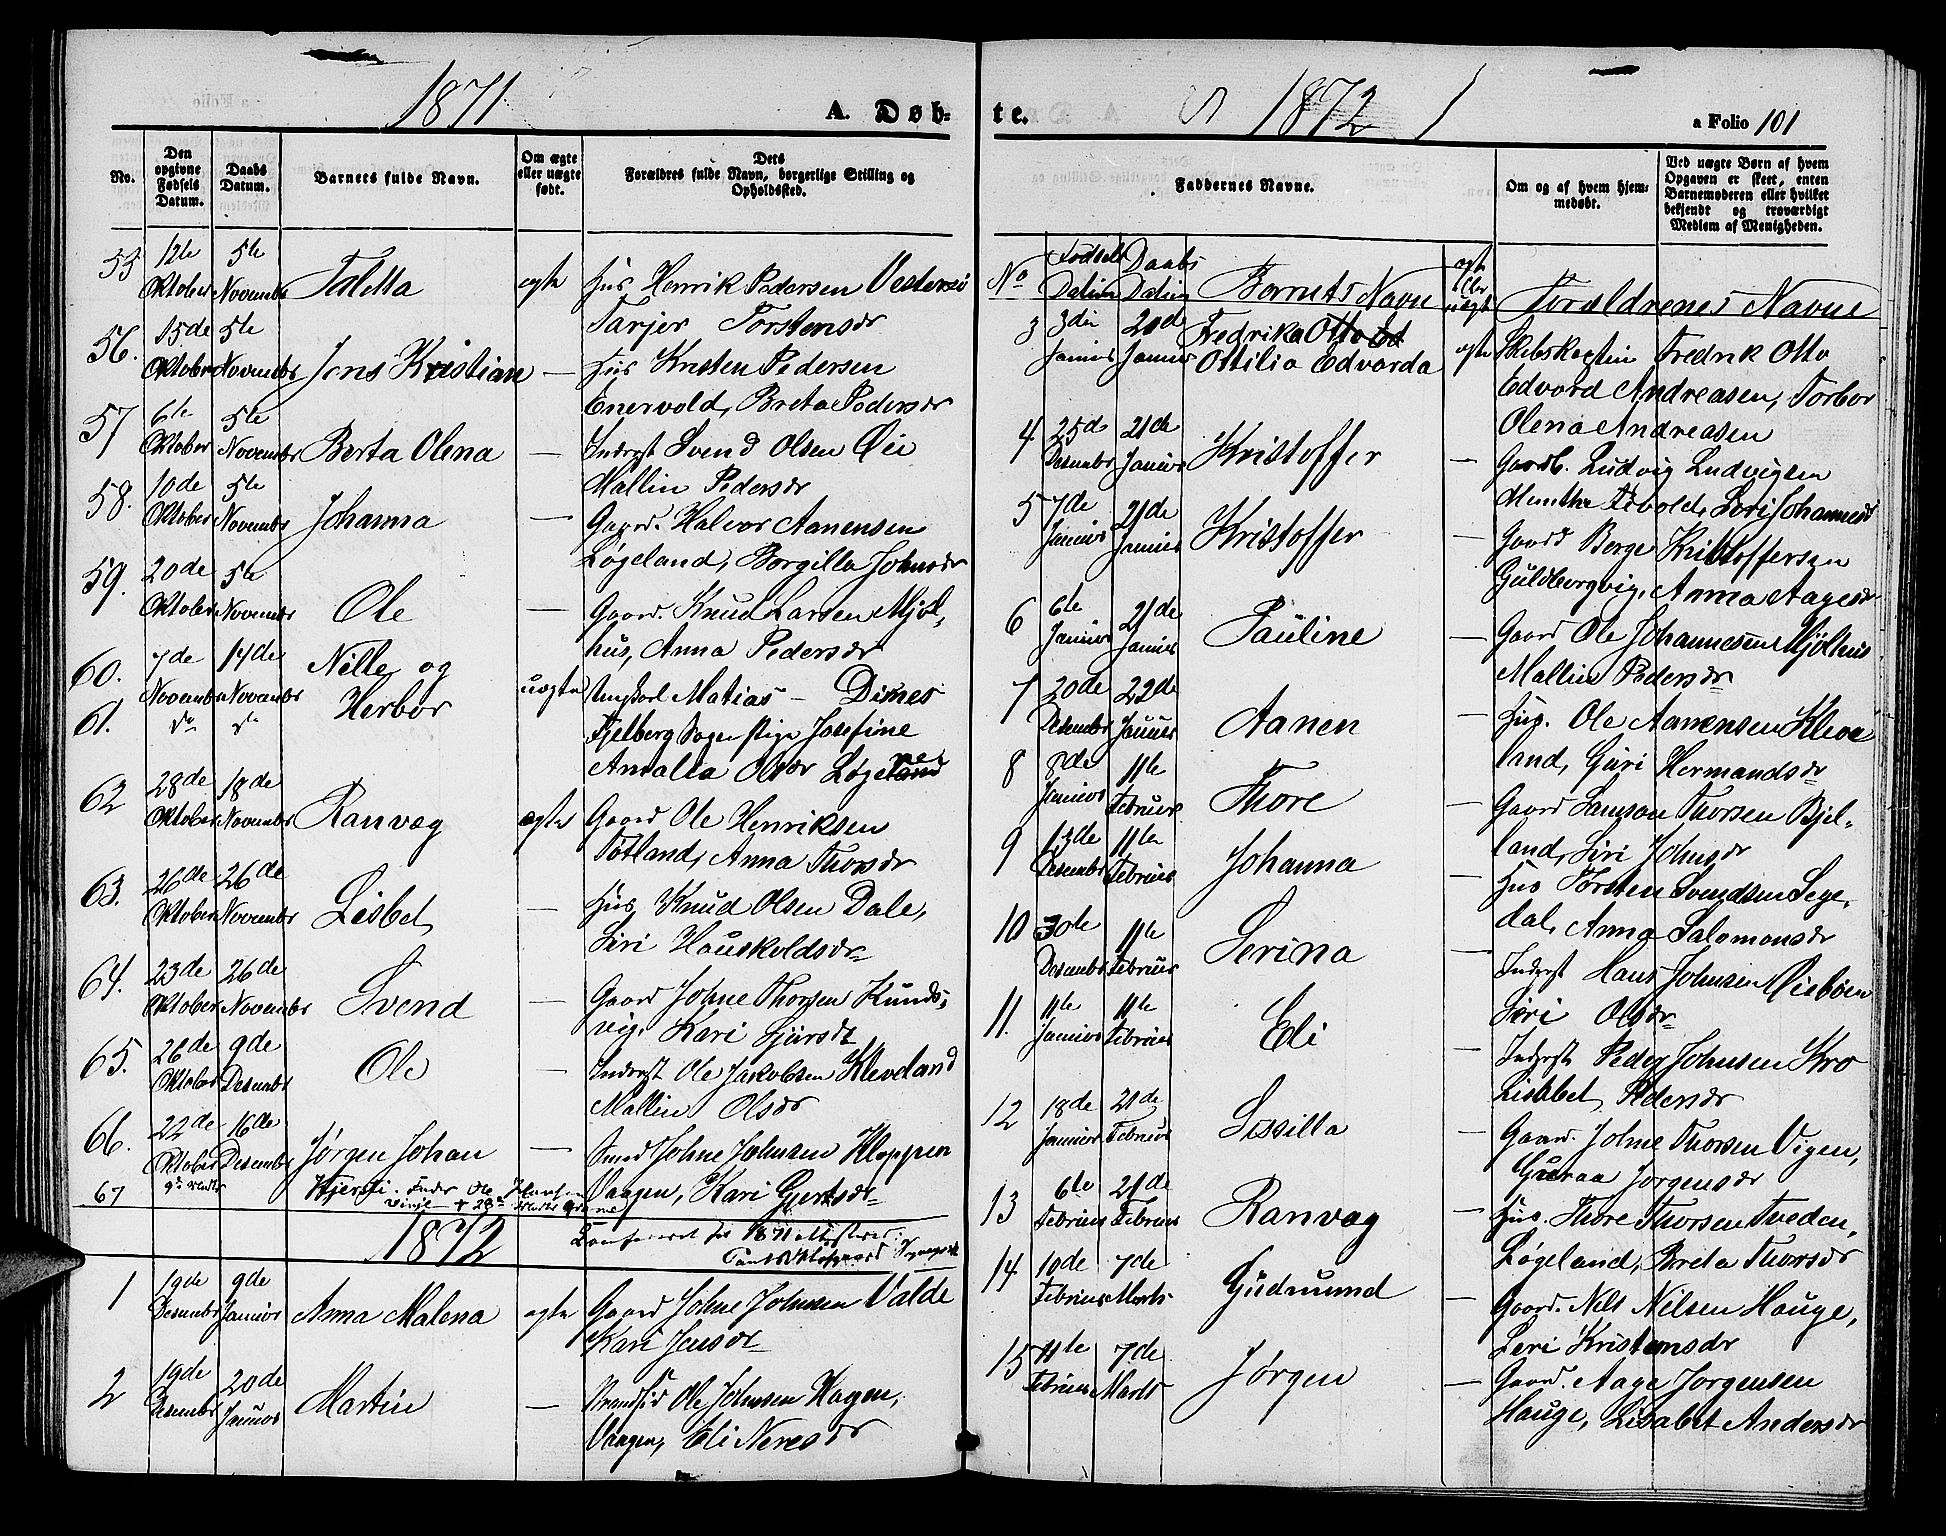 1871
A. Døb-
No.
Den opgivne Fødsels Datum.
Daabs Datum.
Barnets fulde Navn.
Om ægte eller uægte født.
Dets Forældres fulde Navn, borgerlige Stilling og Opholdssted.
55 12te Oktober 5te Novembr Taletta ægte Hus Henrik Pedersen
Tarjer Torstensdr
56. 15de Oktober 5te Novembr Jens Kristian — Hus Kristen Pedersen
Enervold, Breta Pedersdr
57 6te Oktober 5te Novembr Berta Olena — Inderst Svend Olsen Øie
Mallin Pedersdr
58. 10de Oktober 5te Novembr Johanna — Gaard. Halvor Aanensen
Løgeland, Borgilla Johnsdr
59. 20de Oktober 5te Novembr Ole — Gaard. Knud Larsen Mjøl-
hus, Anna Pedersdr
60. 7de Novembr 14de Novembr Nille og
61. do do Herbor uægte Ungkarl Matias — Dimes
Fjelberg Sogn Pige Josefine
Amalia Olsdr Løgeland
62 28de Oktober 18de Novembr Ranvæg ægte Gaard Ole Henriksen
Tøtland, Anna Thorsdr
63. 26de Oktober 26de Novembr Lisbet — Hus Knud Olsen Dale,
Siri Houskoldsdr
64. 23de Oktober 26de Novembr Svend — Gaard Johne Thorsen Kunds-
vig, Kari Sjursdr
65. 26de Oktober 9de Desembr Ole — Inderst Ole Jakobsen Kleveland
Mallin Olsdr
66. 22de Oktober 16de Desembr Jørgen Johan — Strand Johne Johnsen Kloppen
Vaagen, Kari Gjertsdr
67
1872
1 19de Desembr 9de Januar Anna Malena ægte Gaard Johne Johnsen Valde
Kari Jensdr
2 19de Desembr 20de Januar Martin — Strandsid Ole Johnsen Hagen,
Vaagen, Eli Neresdr
te.
1872
a Folio 101
Faddernes Navne.
Om og af hvem hjemmedøbt.
Ved uægte Børn af hvem Opgaven er skeet, enten Barnemoderen eller hvilket bekjendt og troværdigt Medlem af Menigheden.
No Fødsels Datum Daabs Datum Barnets Navn ægt eller uægt Foraldrenes Navne
3 3die Januar 20de Januar Fredrika Otto Ed
Ottilia Edvarda ægte Skibskaptin Fredrik Otto
Edvard Andreasen, Torbor
Olena Andreasen
4 25de Desembr 21de Januar Kristoffer — Gaardb. Ludvig Ludvigsen
Munthe Tivold, Siri Johannesdr
5 7de Januar 21de Januar Kristoffer — Gaard Berge Kristoffersen
Guldbergvig, Anna Aagesdr
6 6te Januar 21de Januar Pauline — Gaard Ole Johannesen Mjølhus
Mallin Pedersdr
7 20de Desembr 22de Januar Aanen — Hus. Ole Aanensen Kleve
land, Guri Hermandsdr
8 8de Januar 11te Februar Thore — Gaard Samson Thorsen Bjel-
land, Siri Johnsdr
9 13de Desembr 11te Februar Johanna — Hus Torsten Svendsen Sege-
dal, Anna Salomonsdr
10 30te Desembr 11te Februar Serina — Inderst Hans Johnsen Øiebøen
Siri Olsdr
11. 11te Januar 11te Februar Eli — Inderst Peder Johnsen Kro
Lisabet Pedersdr
12 18de Januar 21de Februar Sissilla — Gaard. Johne Thorsen Vigen,
Guraa Jørgensdr
13 6te Februar 21de Februar Ranvæg — Hus. Thore Thorsen Tveden,
Løgeland, Breta Thorsdr
14 10de Februar 7de Marts Gudmund — Gaard. Nils Nilsen Hauge,
Seri Kristensdr
15 11te Februar 7de Marts Jørgen — Gaard. Aage Jørgensen
Hauge, Lisabet Andersdr